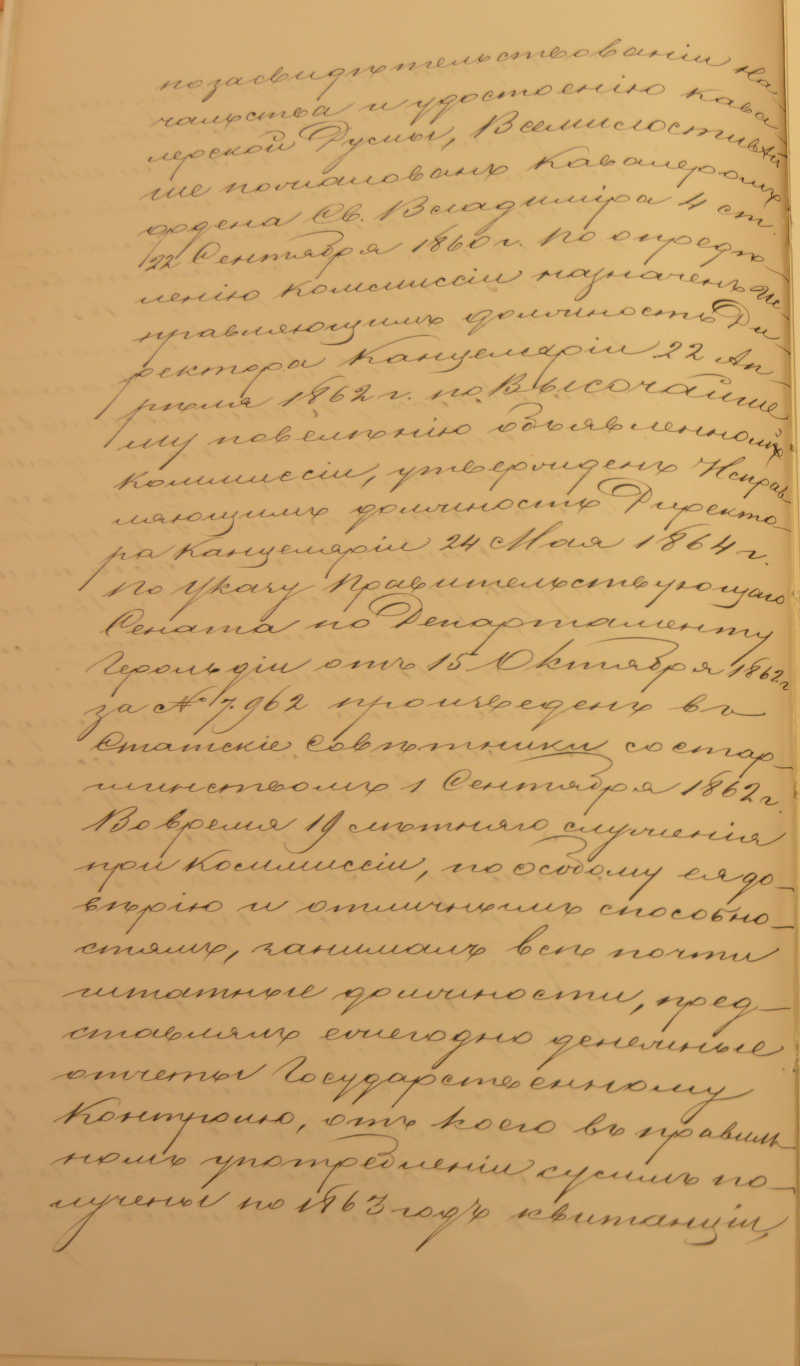 по засвидѣтельствованіи На-
чальства и удостоенію Кава-
лерской Думы, Всемилостивѣй
ше пожалованъ Кавалеромъ
ордена Св. Владиміра 4 ст.
22 Сентября 1860 г. По опредѣ-
ленію Коммиссіи назначенъ Ис-
правляющимъ должность Ди-
ректора Канцеляріи 22 Ап-
рѣля 1862 г. по Высочайше
му повелѣнію объявленному
Коммиссіи, утвержденъ Исправ-
ляющимъ должность Директо-
ра Канцеляріи 24 Мая 1864 г.
По Указу Правительствующаго
Сената по Департаменту
Герольдіи отъ 15 Октября 1862 г
за № 7962 произведенъ въ
Статскіе Совѣтники со стар-
шинствомъ 1 Сентября 1862 г.
Во время 19 лѣтняго служенія
при Коммиссіи, по особому ея до-
вѣрію и отличнымъ способно-
стямъ, занималъ всѣ почти
штатные должности, пред-
ставлялъ ежегодно денежные
отчеты Государственному
Контролю, отъ коего въ правиль-
номъ употребленіи суммъ по-
лучены по 1863 годъ квитанціи,